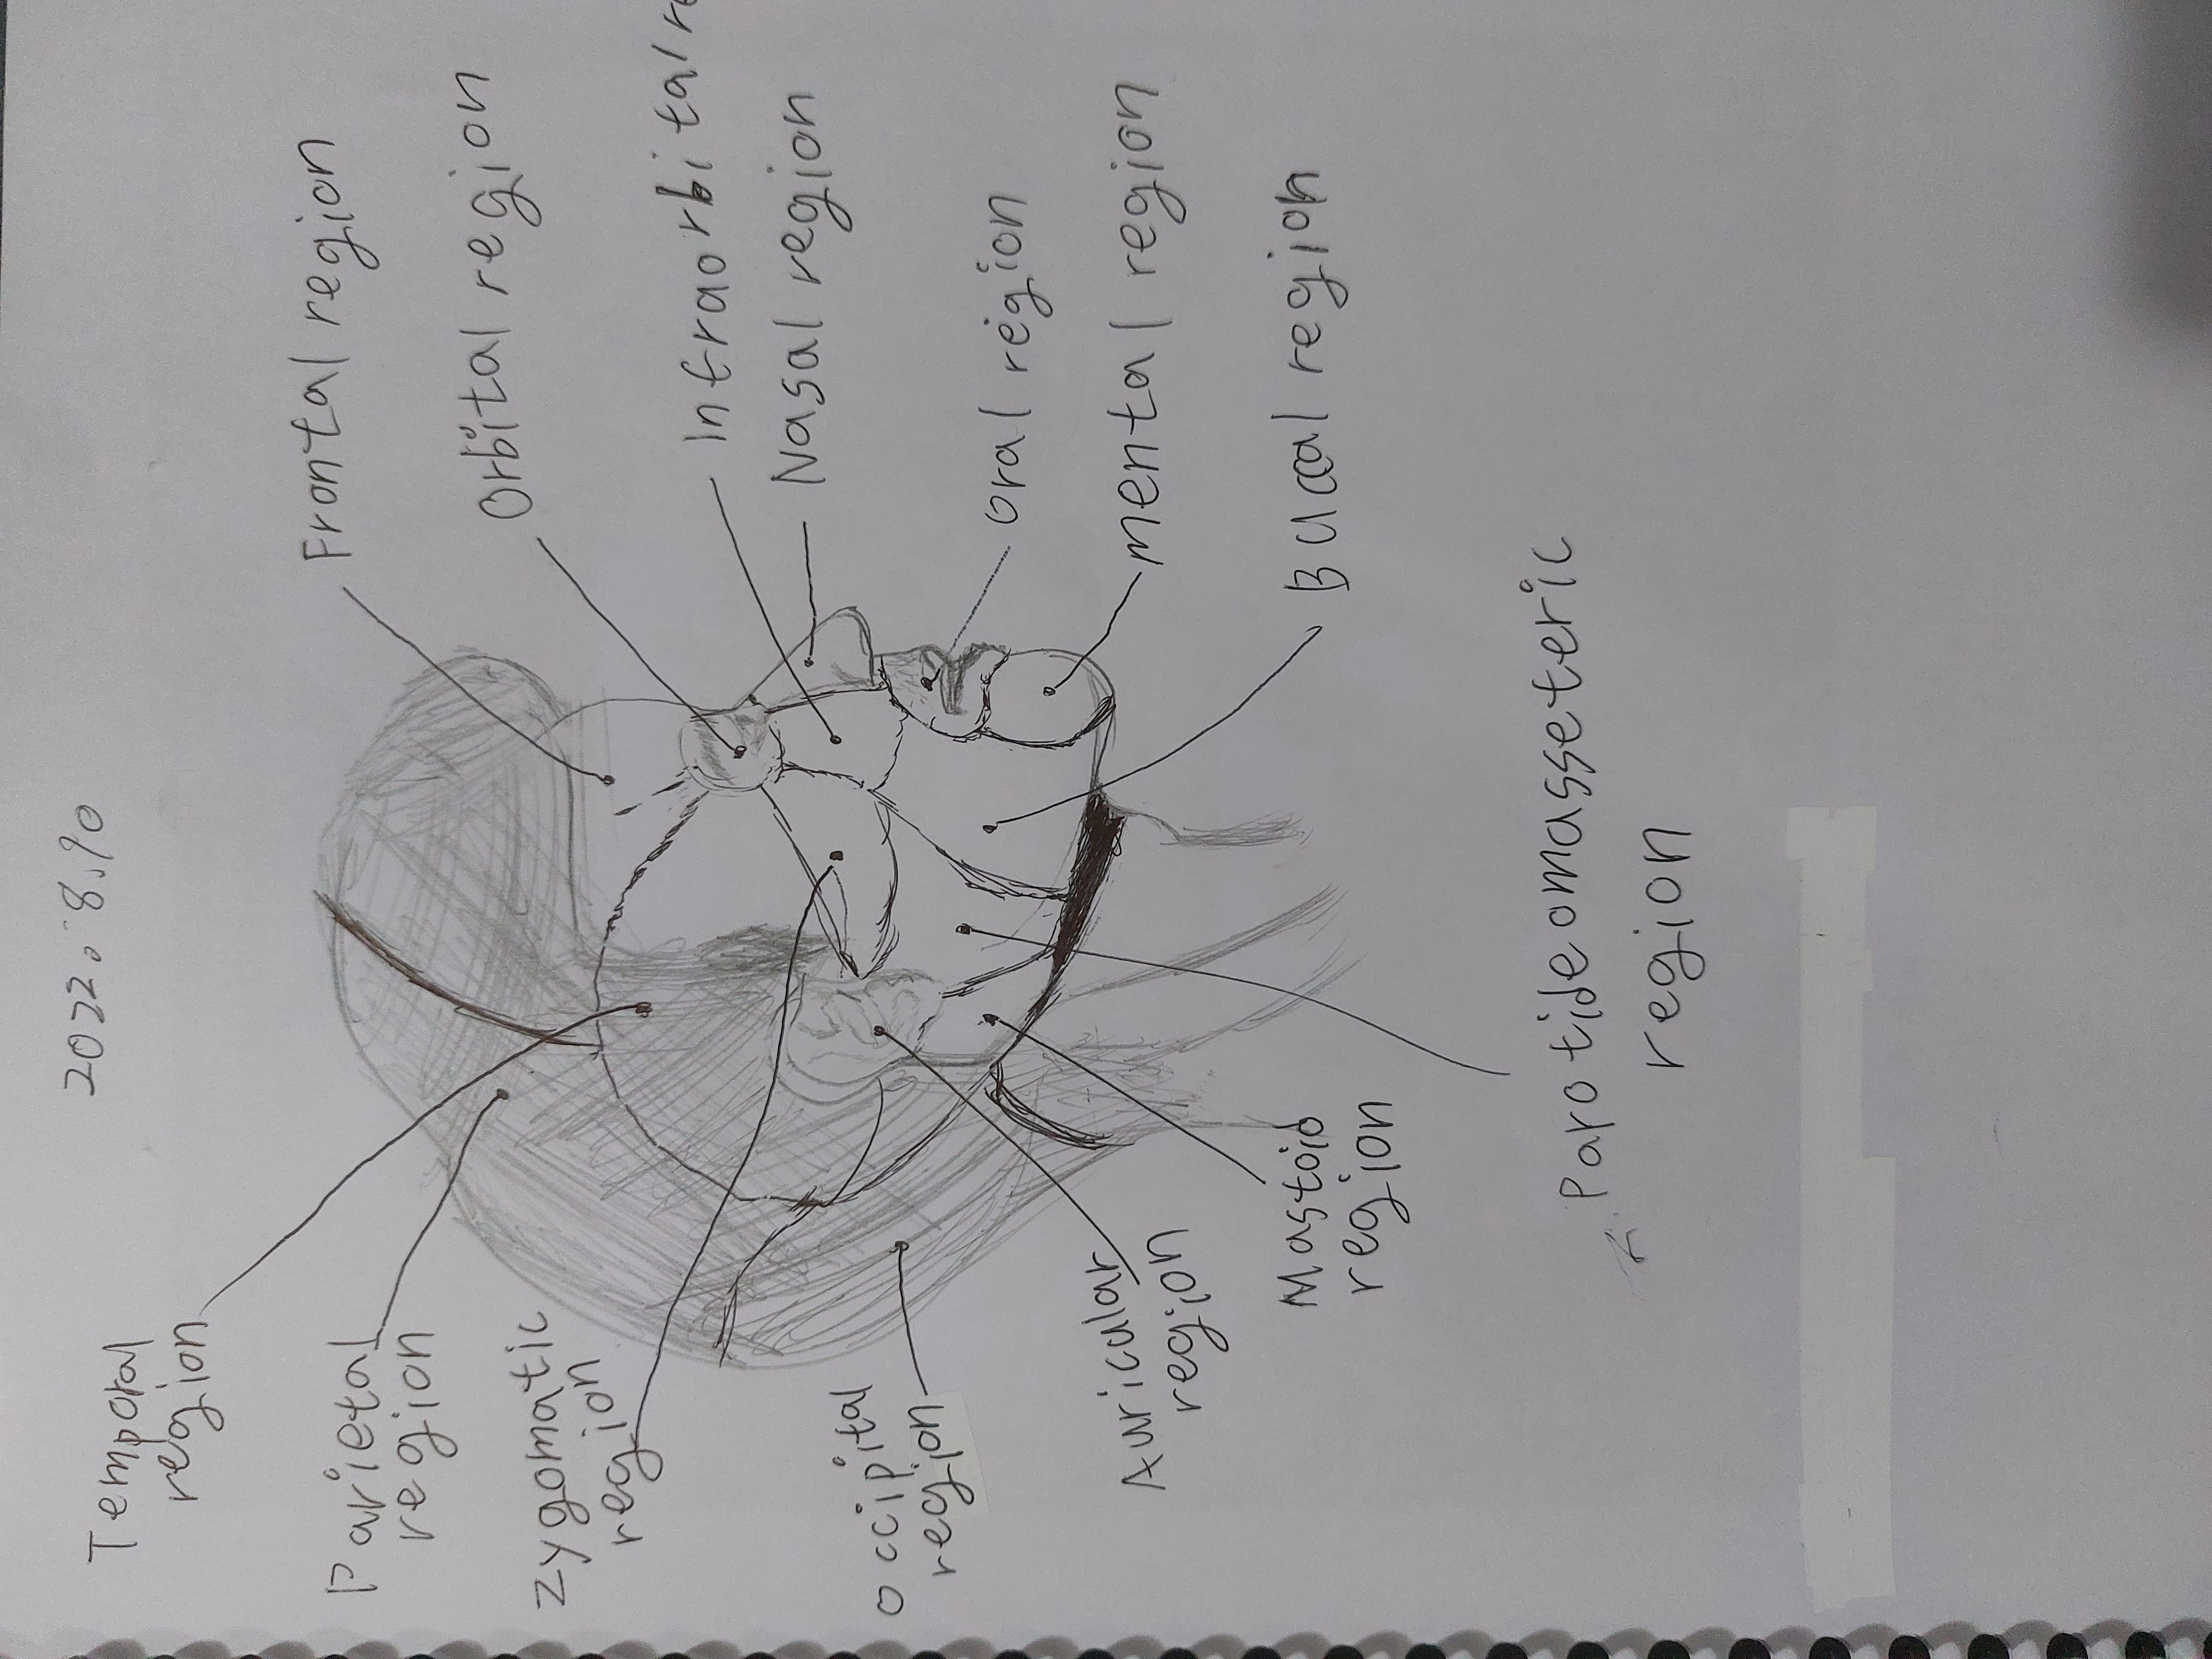 2022.8.10
Temporal
region
Parietal
region
zygomatic
region
occipital
region
Auricular
region
Mastoid
region
Frontal region
Orbital region
Infraorbital re
Nasal region
oral region
mental region
Buccal region
Parotideomasseteric
region